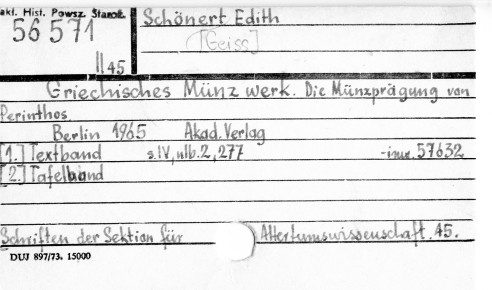 akł. Hist. Powsz. Staroż.
56571
II 45
Schönert Edith
[Geiss]
Griechisches Münzwerk. Die Münzprägung von
Perinthos.
Berlin 1965 Akad. Verlag
[1.] Textband s. IV, nlb. 2, 277 -inw. 57632
[2.] Tafelband
Schriften der Sektion für Altertumswissenschaft. 45.
DUJ 897/73. 15000